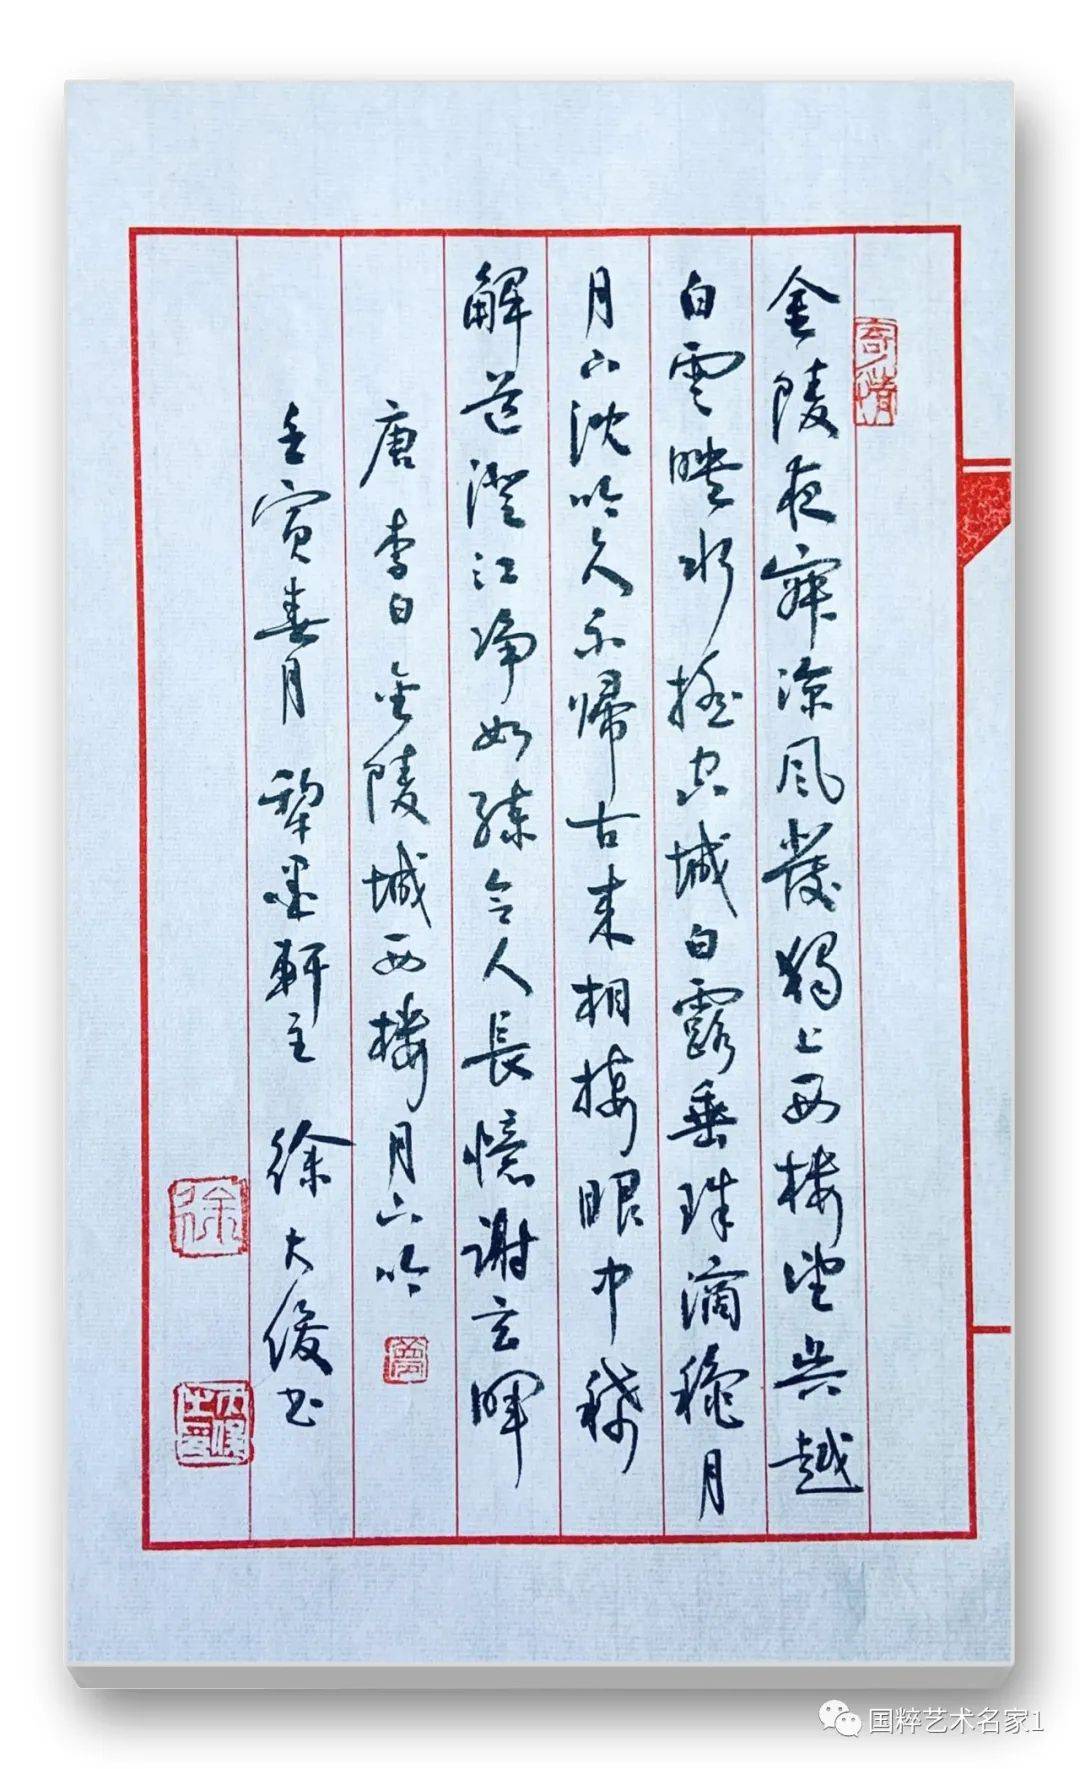 金陵夜寂涼風發獨上西樓望吳越
白雲映水搖空城白露垂珠滴穐月
月下沈吟久不歸古來相接眼中稀
解道澄江净如練令人長憶謝玄暉
唐李白金陵城西樓月下吟
壬寅春月犂墨軒主徐大俊书
徐
国粹艺术名家1